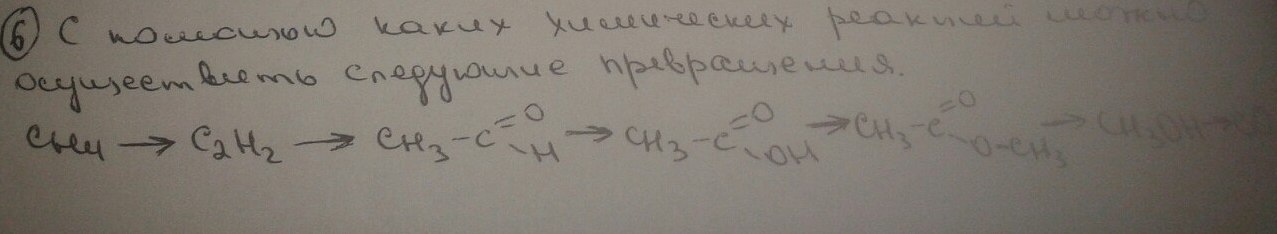 ⑥ С помощью каких химических реакций можно
осуществить следующие превращения.
CH4 → C2H2 → CH3-C(=O)-H → CH3-C(=O)-OH → CH3-C(=O)-O-CH3 → CH3OH →